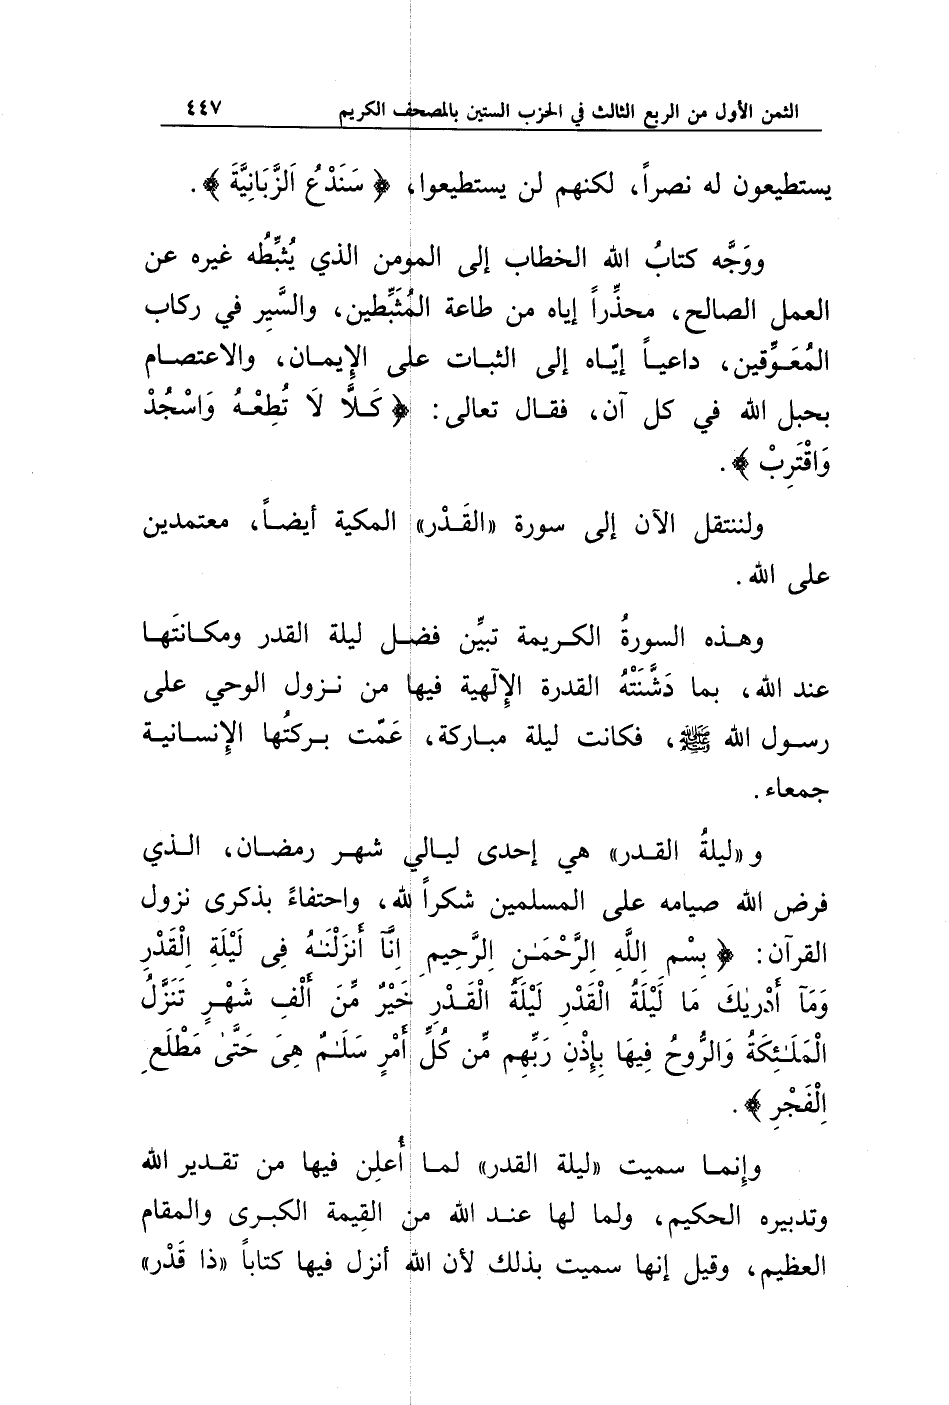 الثمن الأول من الربع الثالث في الحزب الستين بالمصحف الكريم ٤٤٧
يستطيعون له نصراً، لكنهم لن يستطيعوا، ﴿ سَنَدْعُ اَلزَّبَانِيَّةَ ﴾.
ووَجَّه كتابُ الله الخطاب إلى المومن الذي يُثَبِّطُه غيره عن
العمل الصالح، محذِّراً إياه من طاعة المُثَبِّطين، والسَّير في ركاب
المُعَوِّقين، داعيـاً إيّـاه إلى الثبـات على الإيمـان، والاعتصـام
بحبل الله في كل آن، فقـال تعالى: ﴿ كَـلَّا لَا تُطِعْـهُ وَاسْجُدْ
وَاقْتَرِبْ ﴾.
ولننتقل الآن إلى سورة «القَـدْر» المكية أيضـاً، معتمدين
على الله.
وهـذه السورةُ الكـريمة تبيِّن فضـل ليلة القدر ومكـانتَهـا
عند الله، بما دَشَّنَتْهُ القدرة الإلٓهية فيها من نـزول الوحي على
رسـول الله ﷺ، فكانت ليلة مبـاركة، عَمّت بـركتُها الإنسـانيـة
جمعاء.
و«ليلةُ القـدر» هي إحدى ليـالي شهـر رمضـان، الـذي
فرض الله صيامه على المسلمين شكراً لله، واحتفاءً بذكرى نزول
القرآن: ﴿ بِسْمِ اِللَّهِ اِلرَّحْمَـٰنِ اِلرَّحِيمِ اِنَّآ أَنزَلْنَـٰهُ فِى لَيْلَةِ اِلْقَدْرِ
وَمَآ أَدْرٰيكَ مَا لَيْلَةُ الْقَدْرِ لَيْلَةُ الْقَـدْرِ خَيْرٌ مِّنَ أَلْفِ شَهْـرٍ تَنَزَّلُ
الْمَلَـٰئِكَةُ وَالرُّوحُ فِيهَا بِإِذْنِ رَبِّهِم مِّن كُلِّ أَمْرٍ سَلَـٰمٌ هِىَ حَتَّىٰ مَطْلَعِ
اِلْفَجْرِ ﴾.
وإنمـا سميت «ليلة القدر» لمـا أُعلِن فيها من تقـدير الله
وتدبيره الحكيم، ولما لها عنـد الله من القيمة الكبـرى والمقام
العظيم، وقيل إنها سميت بذلك لأن الله أنزل فيها كتاباً «ذا قَدْر»